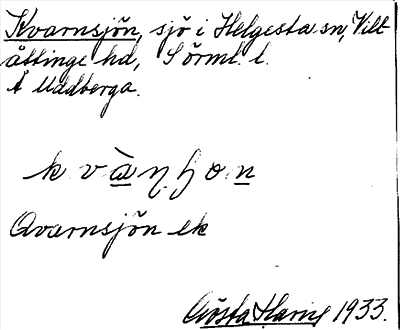 Kvarnsjön, sjö i Helgesta sn, Vill-
åttinge hd, Sörml. l.
Å Uddberga.
Qvarnsjön ek
Gösta Haring 1933.